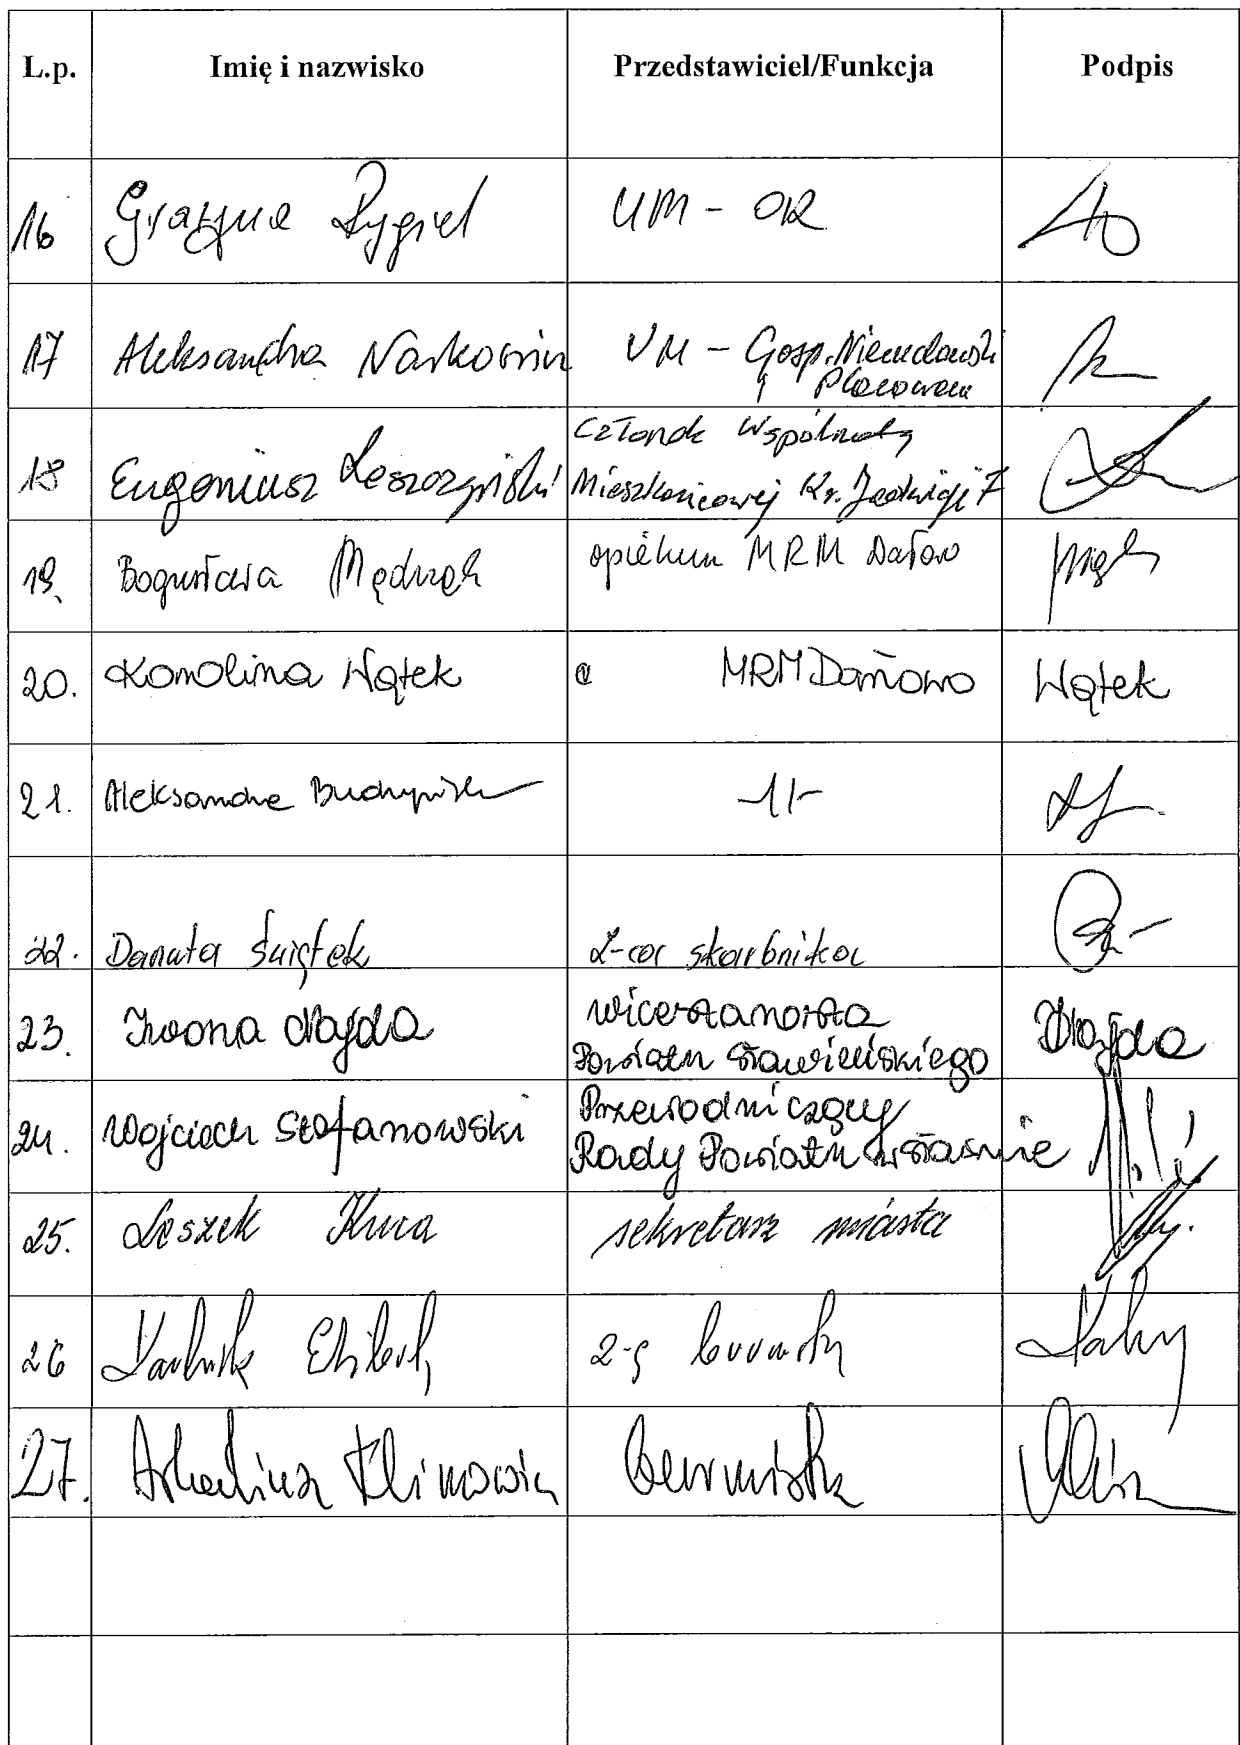 L.p. Imię i nazwisko Przedstawiciel/Funkcja Podpis
16 Grażyna Rygiel UM - OR
17 Aleksandra UM - Gosp. Nieruchomości
i Planowania
18 Eugeniusz Leszczyński Członek Wspólnoty
Mieszkaniowej Kr. Jadwigi 7
19. Bogusława Mędrzak opiekun MRM Darłowo
20. Karolina Wątek MRM Darłowo Wątek
21. Aleksandra -11-
22. Danuta Świątek Z-ca skarbnika
23. Iwona Majda wicestarosta Majda
Powiatu Sławieńskiego
24. Wojciech Stefanowski Przewodniczący
Rady Powiatu w Sławnie
25. Leszek Kuca sekretarz miasta
26 2-ę burmistrz
27. Arkadiusz Klimowicz burmistrz